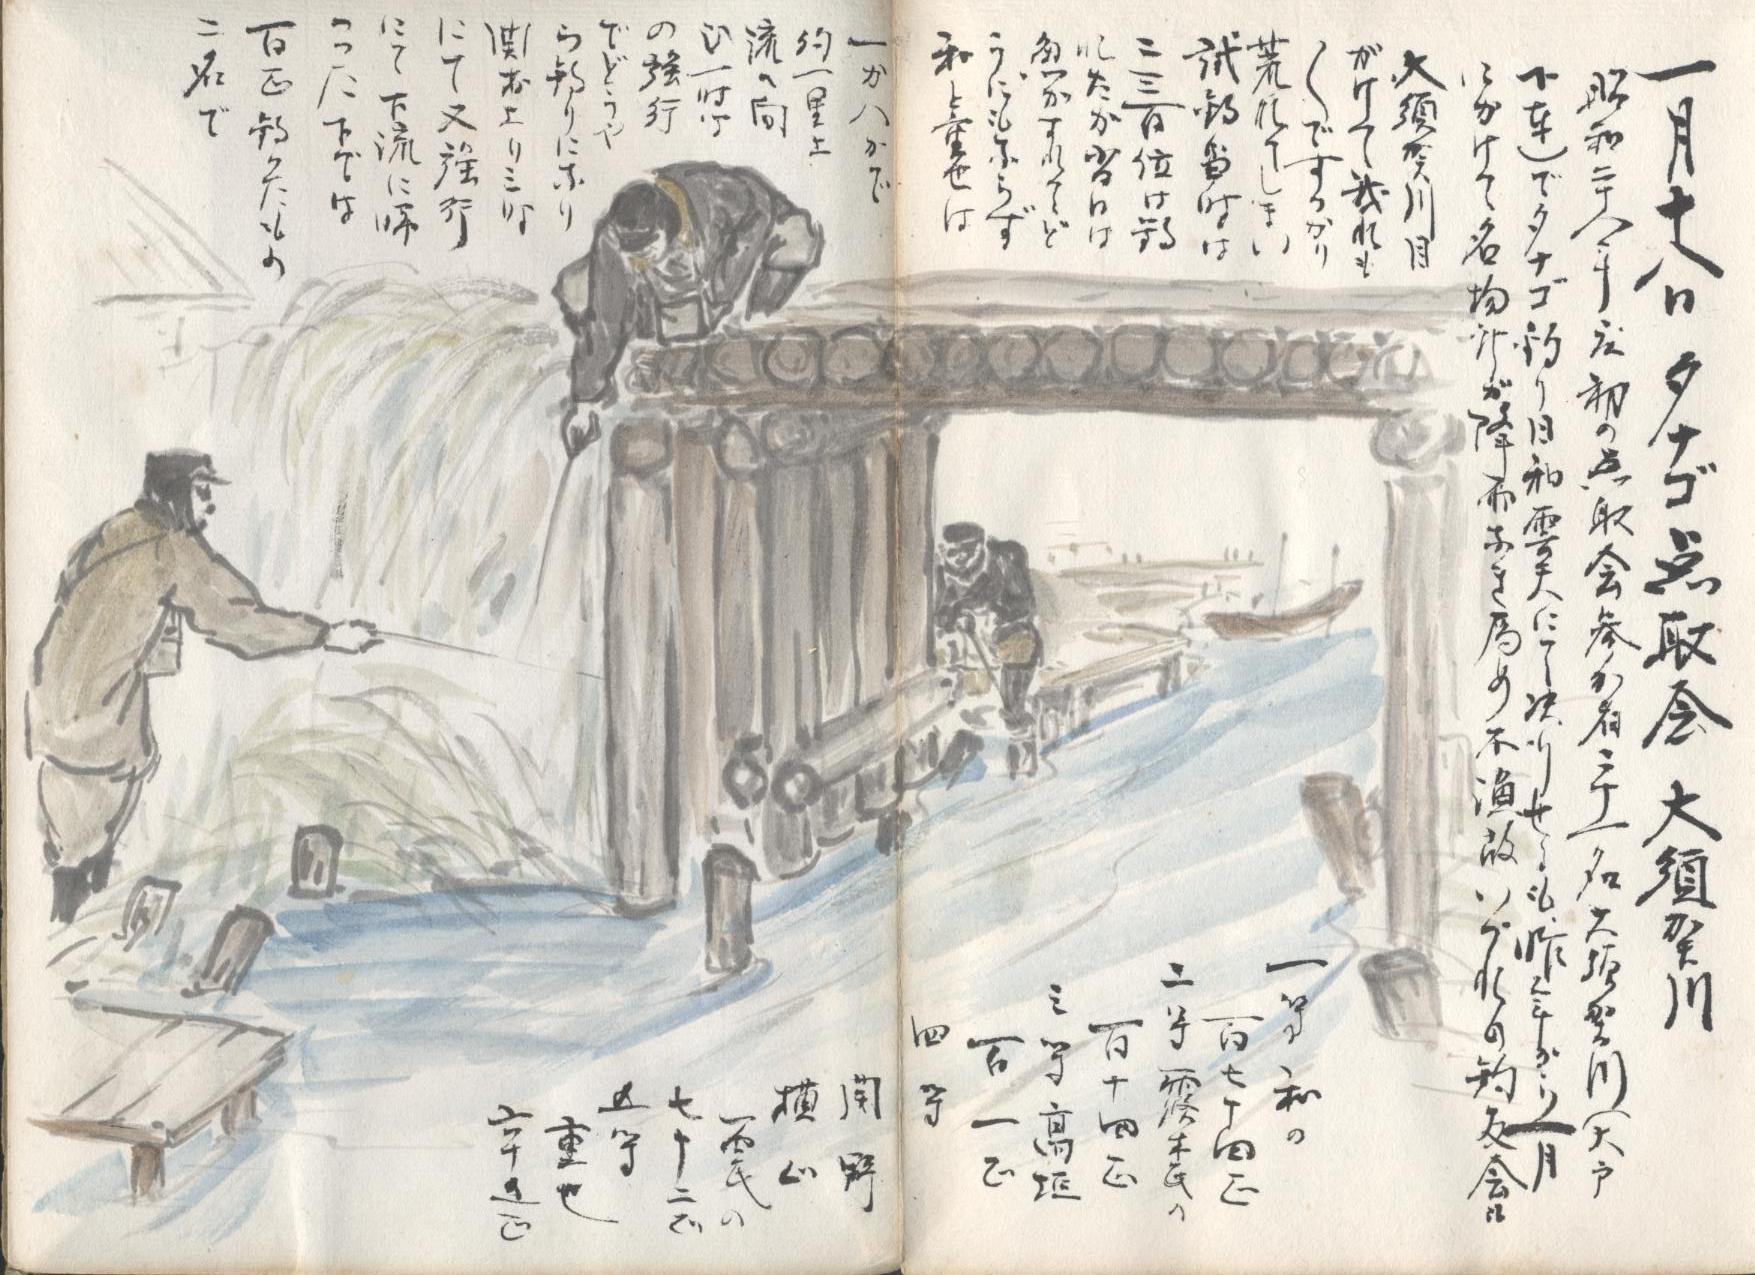 一月十八日 タナゴ点取会 大須賀川
昭和二十八年度初の点取会参加者二十一名大須賀川(大戸
下車)でタナゴ釣り日和曇天にて決行せしも、昨年から一月
にかけて名物 が降雨なき為め不漁故いづれの釣友会も
大須賀川目
がけて我れも
〱ですつかり
荒れてしまい
試釣当時は
二三百位は釣
れたが当日は
魚がすれてど
うにもならず
私と重也は
一か八かで
約一里上
流へ向
ひ一時
の強行
でどうや
ら釣りになり
関橋より三時
にて又強行
にて下流に帰
つた下では
百疋釣つたもの
二名で
一等 私の
百七十四疋
二等 露木氏の
百十四疋
三等 高垣
百一疋
四等
関野
横山
両氏の
七十二疋
五等
重也
六十五疋